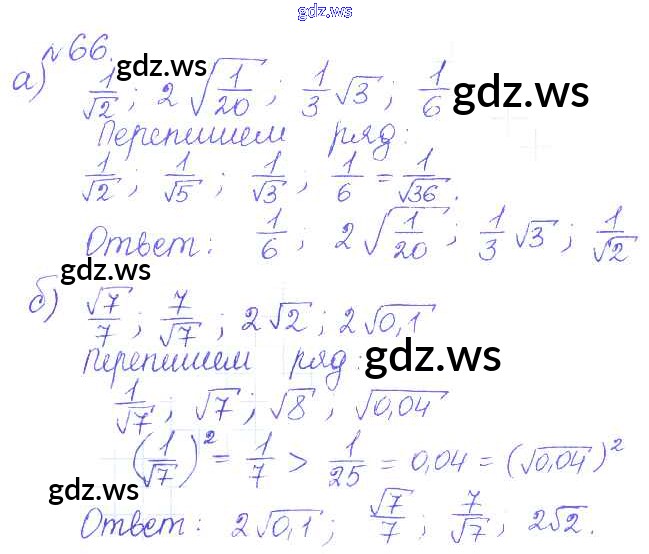 gdz.ws
№66. gdz.ws
а) 1/√2 ; 2√(1/20) ; 1/3 √3 ; 1/6 gdz.ws
Перепишем ряд:
1/√2 ; 1/√5 ; 1/√3 ; 1/6 = 1/√36 .
Ответ: 1/6 ; 2√(1/20) ; 1/3 √3 ; 1/√2
gdz.ws
б) √7/7 ; 7/√7 ; 2√2 ; 2√0,1
Перепишем ряд: gdz.ws
1/√7 ; √7 ; √8 ; √0,04
(1/√7)² = 1/7 > 1/25 = 0,04 = (√0,04)²
gdz.ws
Ответ: 2√0,1 ; √7/7 ; 7/√7 ; 2√2.